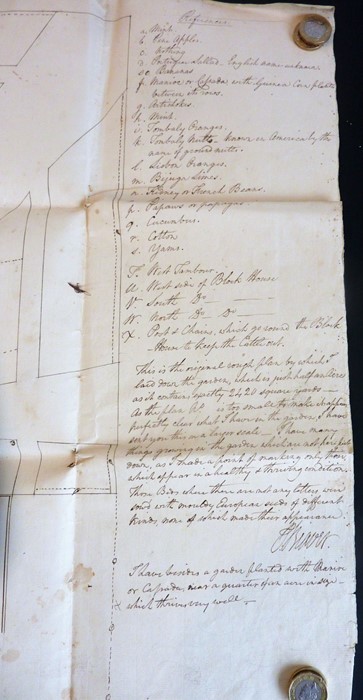 References.
a. Mint.
b. Pine Apples.
c. Nothing
d. Potatoes salted. English name unknown
e. Bananas
f. Manioc or Cassada with Guinea Corn planted
between its rows.
g. Artichokes
h. Mint.
i. Tombaly Oranges.
k. Tombaly Nutts - known in America by the
name of ground nutts.
l. Lisbon Oranges.
m. Bijuga Limes.
n. Kidney or French Beans.
p. Papaws or papayas
q. Cucumbers.
r. Cotton
s. Yams.
T. West Tambour
U. West side of Block House
V. South Do.
W. North Do. Do.
X. Posts & Chains, which go round the Block
House to keep the Cattle out.
This is the original rough plan by which I
laid down the garden, which is just half an Acre
as it contains exactly 2420 square yards
As the plan is too small to make
perfectly clear what I have in the garden, I have
sent you this on a larger scale. I have many
things growing in the garden, which are not here put
down, as I made a point of marking only those
which appear in a healthy & thriving condition.
Those Beds where there are not any letters were
sowed with mouldy European seeds of different
kinds, none of which made their appearance
P Beaver.
I have besides a garden planted with Manioc
or Cassada, near a quarter of an acre in size
which thrives very well.